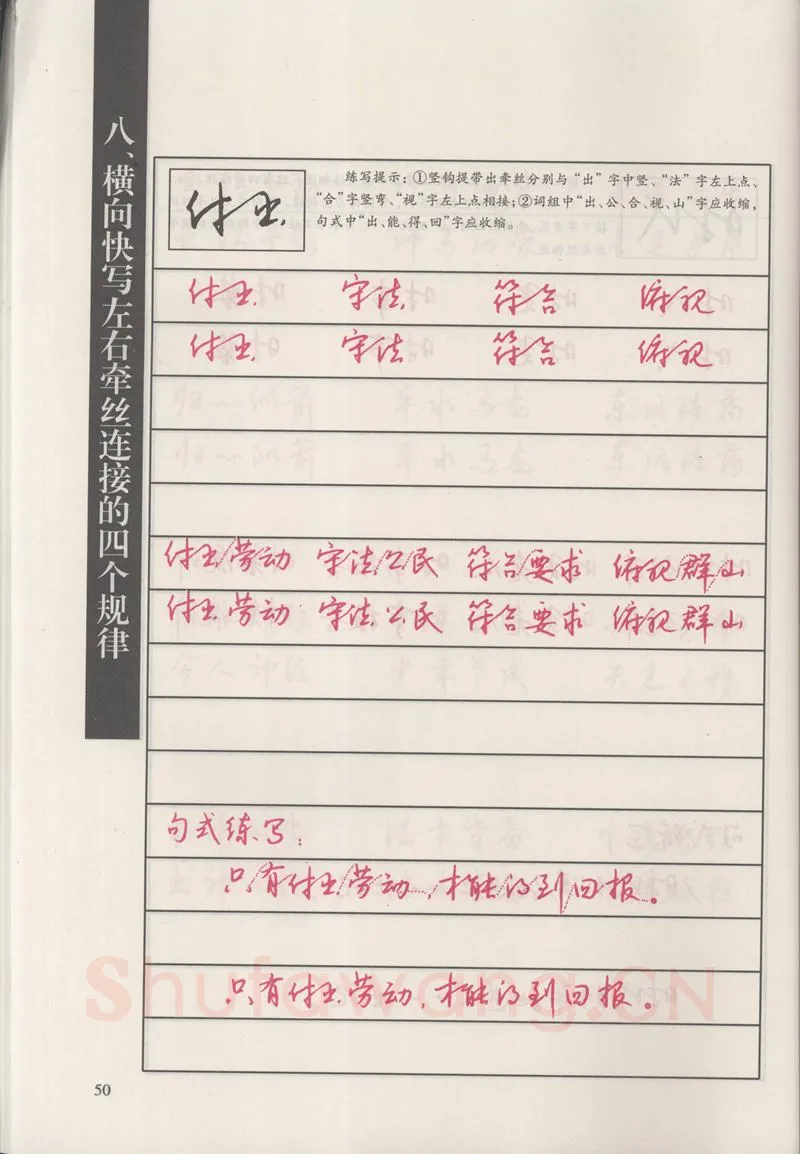 八、横向快写左右牵丝连接的四个规律
练写提示：①竖钩提带出牵丝分别与“出”字中竖、“法”字左上点、
“合”字竖弯、“视”字左上点相接；②词组中“出、公、合、视、山”字应收缩，
句式中“出、能、得、回”字应收缩。
付出
付出 守法 符合 俯视
付出 守法 符合 俯视
付出劳动 守法公民 符合要求 俯视群山
付出劳动 守法公民 符合要求 俯视群山
句式练写：
只有付出劳动，才能得到回报。
只有付出劳动，才能得到回报。
Shufawang.CN
50